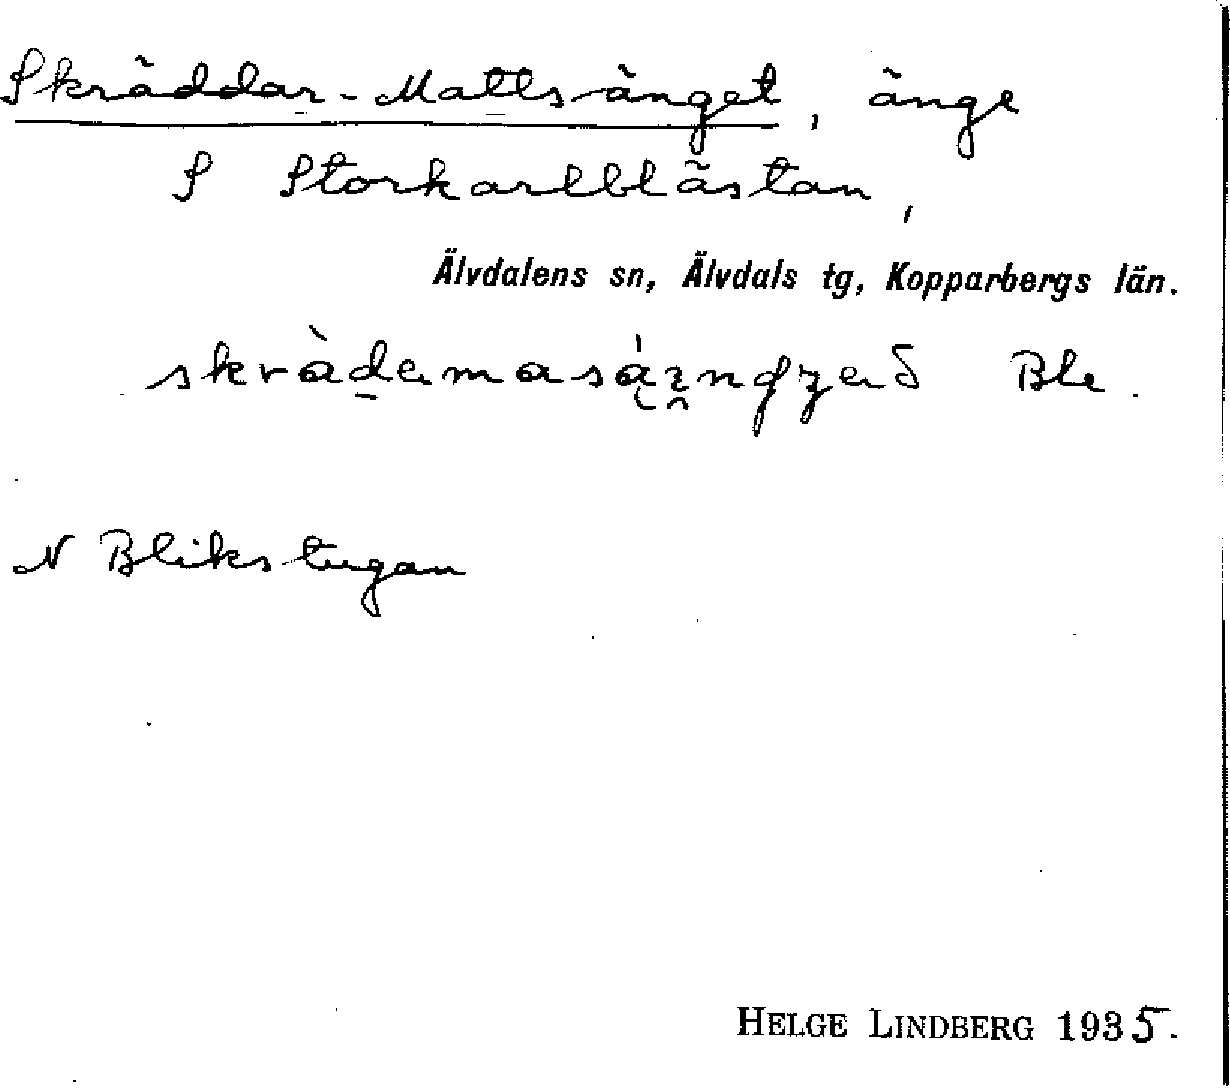 Skräddar-Mattsänget, änge
S Storkarlblästan,
Älvdalens sn, Älvdals tg, Kopparbergs län.
Ble.
N Blikstugan
HELGE LINDBERG 1935.